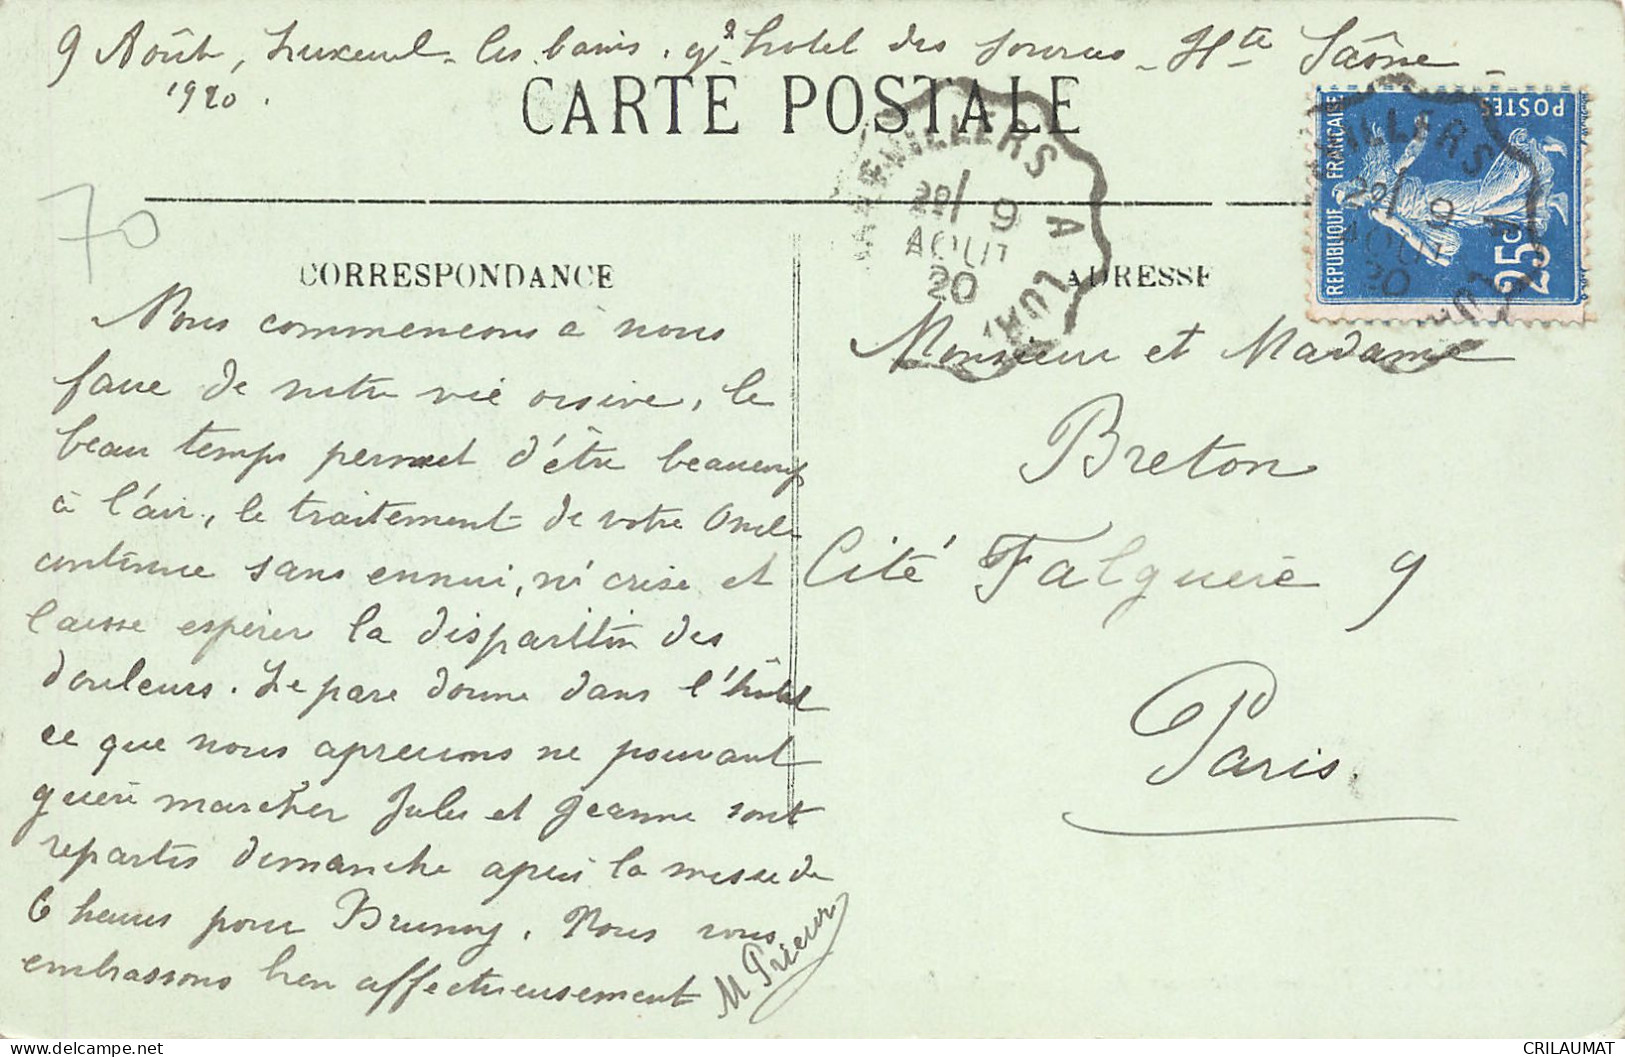 9 Août, Luxeuil-les bains. gd hotel des sources - Hte Saône -
1920.
CARTE POSTALE
70
VILLERS A LUX
2º/ 9
AOUT
20
REPUBLIQUE FRANCAISE
POSTES
25c
CORRESPONDANCE
ADRESSE
Nous commencons à nous
faire de notre vie oisive, le
beau temps permet d'être beaucoup
à l'air, le traitement de votre Oncle
continue sans ennui, ni crise et
laisse espérer la disparition des
douleurs. Le parc donne dans l'hôtel
ce que nous apprecions ne pouvant
guère marcher Jules et Jeanne sont
repartis dimanche après la messe de
6 heures pour Brunoy. Nous vous
embrassons bien affectueusement
M Prieur
Monsieur et Madame
Breton
Cité Falguière 9
Paris.
CPRPHIL.com
CRILAUMAT